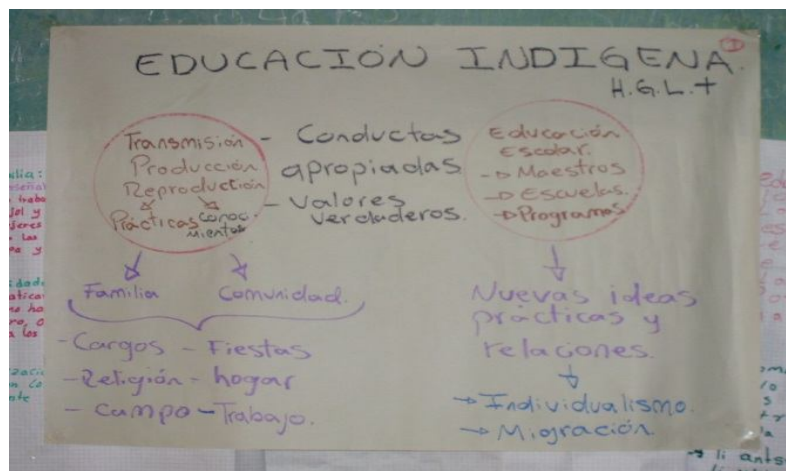 EDUCACIÓN INDIGENA.
1
H.G.L.+
Transmisión
Producción
Reproducción
Prácticas Conoci-
mientos
- Conductas
apropiadas
- Valores
verdaderos.
Educación
Escolar.
→ Maestros
→ Escuelas.
→ Programas
Familia Comunidad.
- Cargos - Fiestas
- Religión - hogar
- Campo - Trabajo.
Nuevas ideas
prácticas y
relaciones.
→ Individualismo.
→ Migración.
li ants